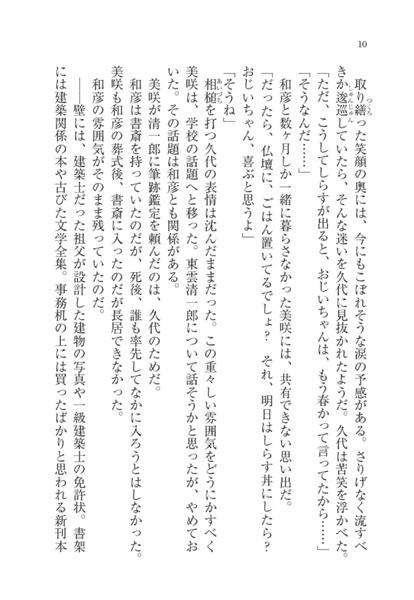 10
取り繕った笑顔の奥には、今にもこぼれそうな涙の予感がある。さりげなく流すべ
きか逡巡していたら、そんな迷いを久代に見抜かれたようだ。久代は苦笑を浮かべた。
「ただ、こうしてしらすが出ると、おじいちゃんは、もう春かって言ってたから……」
「そうなんだ……」
和彦と数ヶ月しか一緒に暮らさなかった美咲には、共有できない思い出だ。
「だったら、仏壇に、ごはん置いてるでしょ？　それ、明日はしらす丼にしたら？
おじいちゃん、喜ぶと思うよ」
「そうね」
相槌を打つ久代の表情は沈んだままだった。この重々しい雰囲気をどうにかすべく
美咲は、学校の話題へと移った。東雲清一郎について話そうかと思ったが、やめてお
いた。その話題は和彦とも関係がある。
美咲が清一郎に筆跡鑑定を頼んだのは、久代のためだ。
和彦は書斎を持っていたのだが、死後、誰も率先してなかに入ろうとはしなかった。
美咲も和彦の葬式後、書斎に入ったのだが長居できなかった。
和彦の雰囲気がそのまま残っていたのだ。
――壁には、建築士だった祖父が設計した建物の写真や一級建築士の免許状。書架
には建築関係の本や古びた文学全集。事務机の上には買ったばかりと思われる新刊本